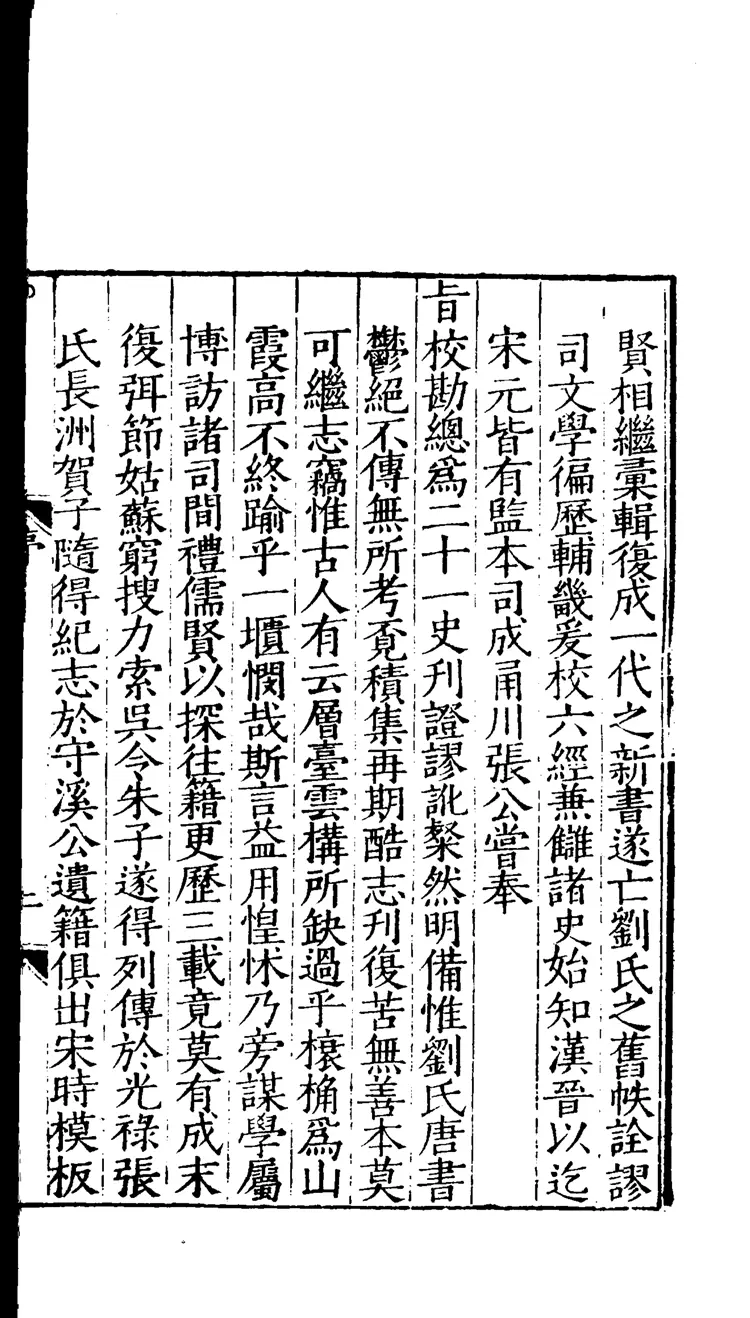 賢相繼彙輯復成一代之新書遂亡劉氏之舊帙詮謬
司文學徧歷輔畿爰校六經兼讎諸史始知漢晉以迄
宋元皆有監本司成甬川張公嘗奉
旨校勘總爲二十一史刋證謬訛粲然明備惟劉氏唐書
鬱絕不傳無所考覔積集再期酷志刋復苦無善本莫
可繼志竊惟古人有云層臺雲構所缺過乎榱桷爲山
霞高不終踰乎一樻憫哉斯言益用惶怵乃旁謀學屬
博訪諸司間禮儒賢以探往籍更歷三載竟莫有成末
復弭節姑蘇窮搜力索吳令朱子遂得列傳於光祿張
氏長洲賀子隨得紀志於守溪公遺籍俱出宋時模板